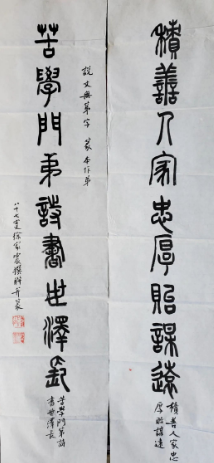 積善人家忠厚貽謀遠
積善人家忠
厚貽謀遠
苦學門弟詩書世澤長
說文無第字 篆本作弟
苦學門第詩
書世澤長
撰聯并篆